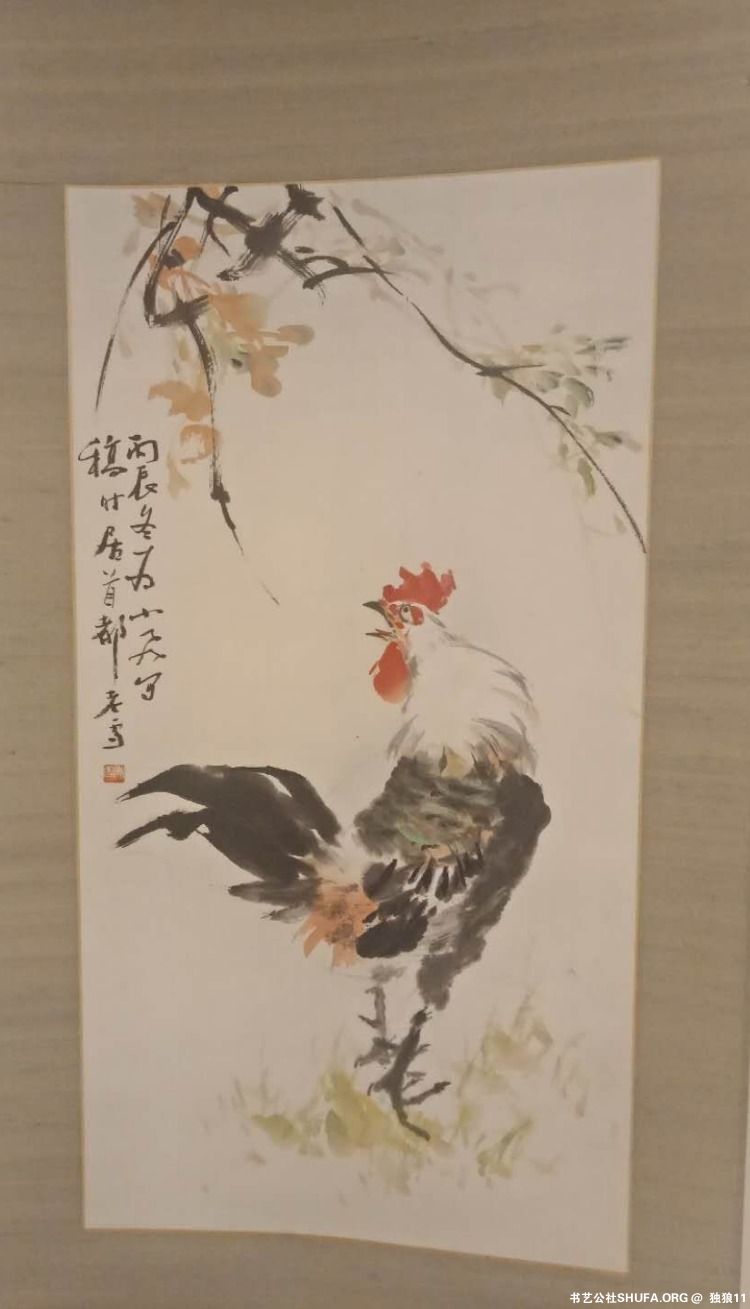 丙辰冬为小写
稿时居首都 老雪
书艺公社SHUFA.ORG @ 独狼11